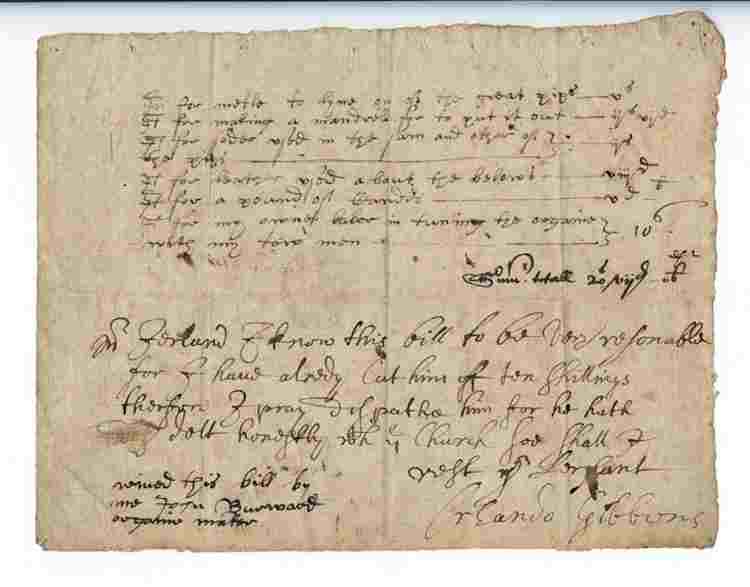 It for metle to lyne on of the great pips — vs
It for making a mandrell fyr to put it out — ijs vjd
It for soder vsed in the sam and other of } ijs
the pips
It for leather vsed about the belows — viijd
It for a pound of kandels — vd
It for my owne labor in tuning the organe }
with my tow men } 10s
Sum totall
Mr Ierland I know this bill to be very resonable
for I have alredy Cut him off ten shillings
therfore I pray dispatche him for he hath
delt honestly wth ye Church soe shall I
rest yr Servant
Orlando Gibbons
reciued this bill by
me John Burward
organe maker